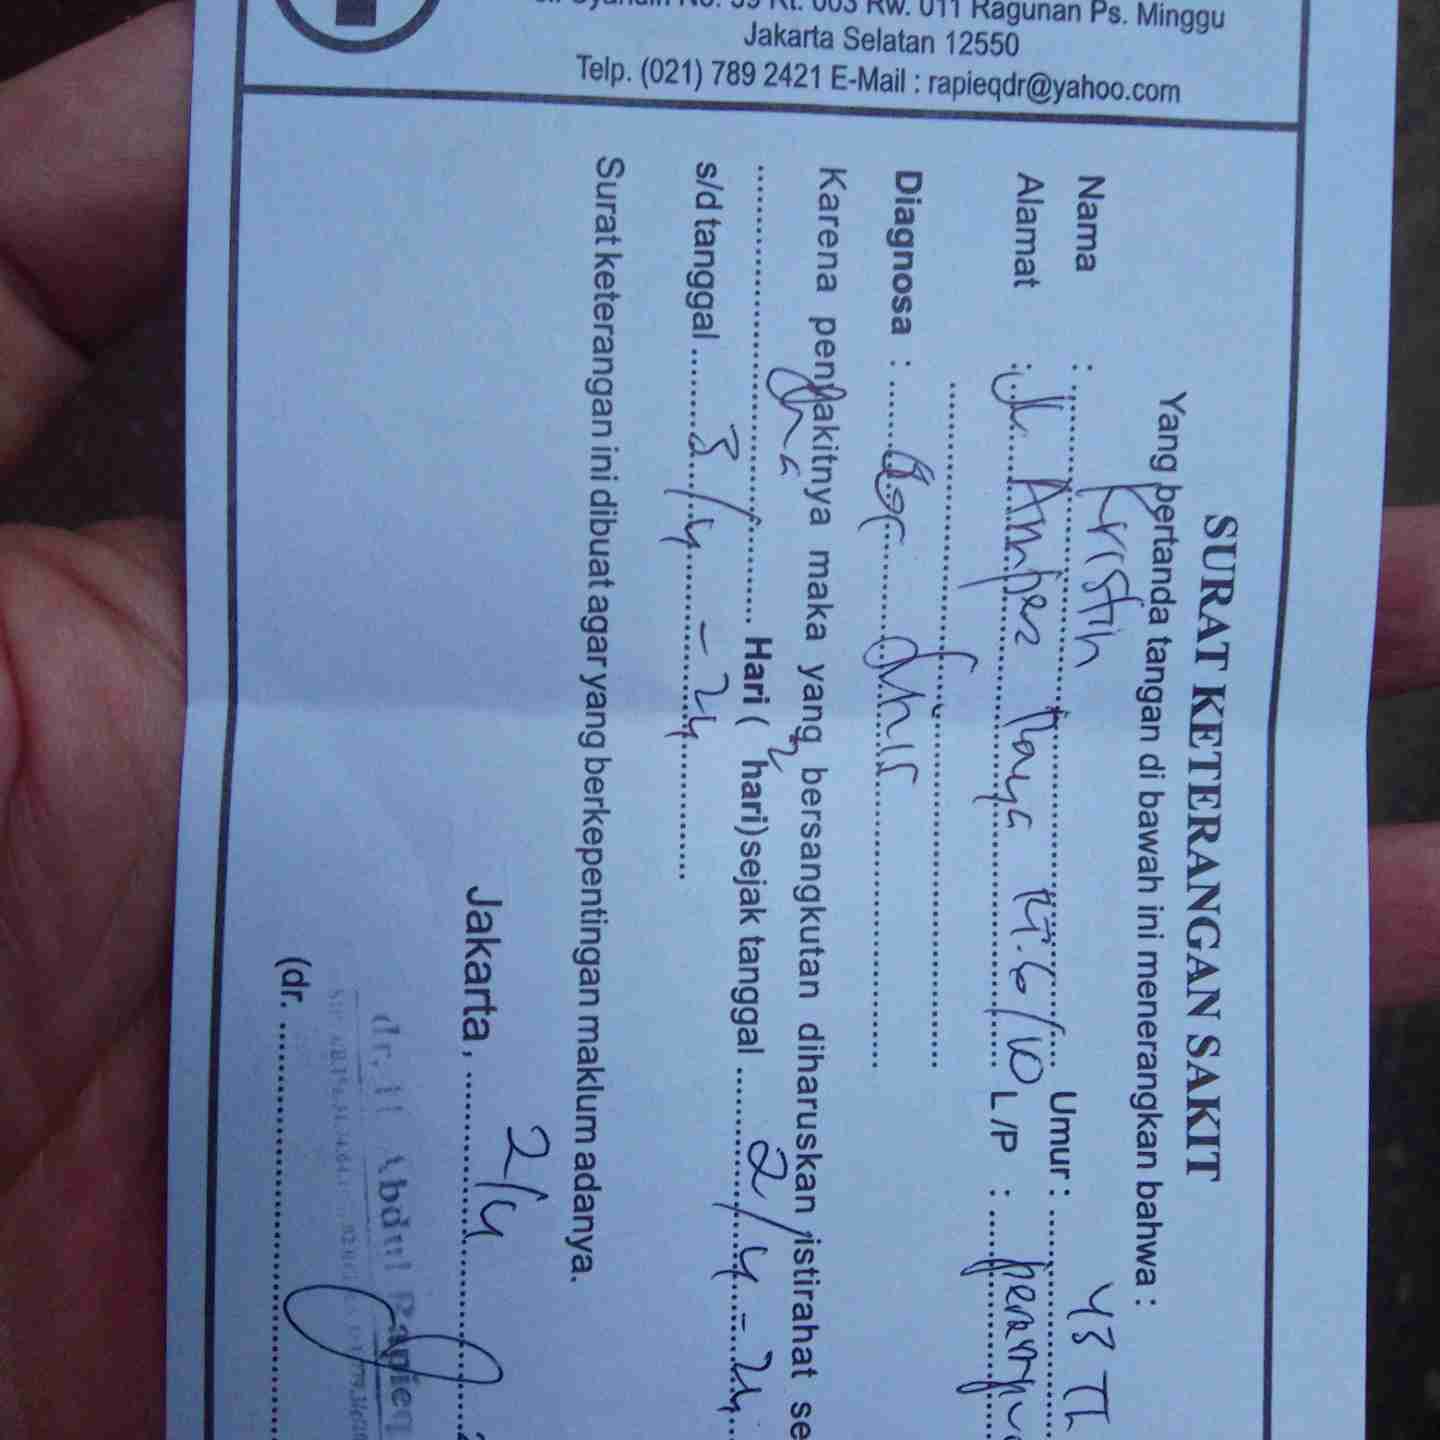 No. 39 Rt. 003 Rw. 011 Ragunan Ps. Minggu
Jakarta Selatan 12550
Telp. (021) 789 2421 E-Mail : rapieqdr@yahoo.com
SURAT KETERANGAN SAKIT
Yang bertanda tangan di bawah ini menerangkan bahwa :
Nama : Kristin Umur : 43 Th
Alamat : Jl. Ampera Raya Rt. 6/10 L/P : perempu
Diagnosa :
Karena penyakitnya maka yang bersangkutan diharuskan istirahat se
Dua Hari ( 2 hari) sejak tanggal 2/4 - 24
s/d tanggal 3/4 - 24
Surat keterangan ini dibuat agar yang berkepentingan maklum adanya.
Jakarta, 2/4 2
dr. H Abdul Rapieq
(dr.